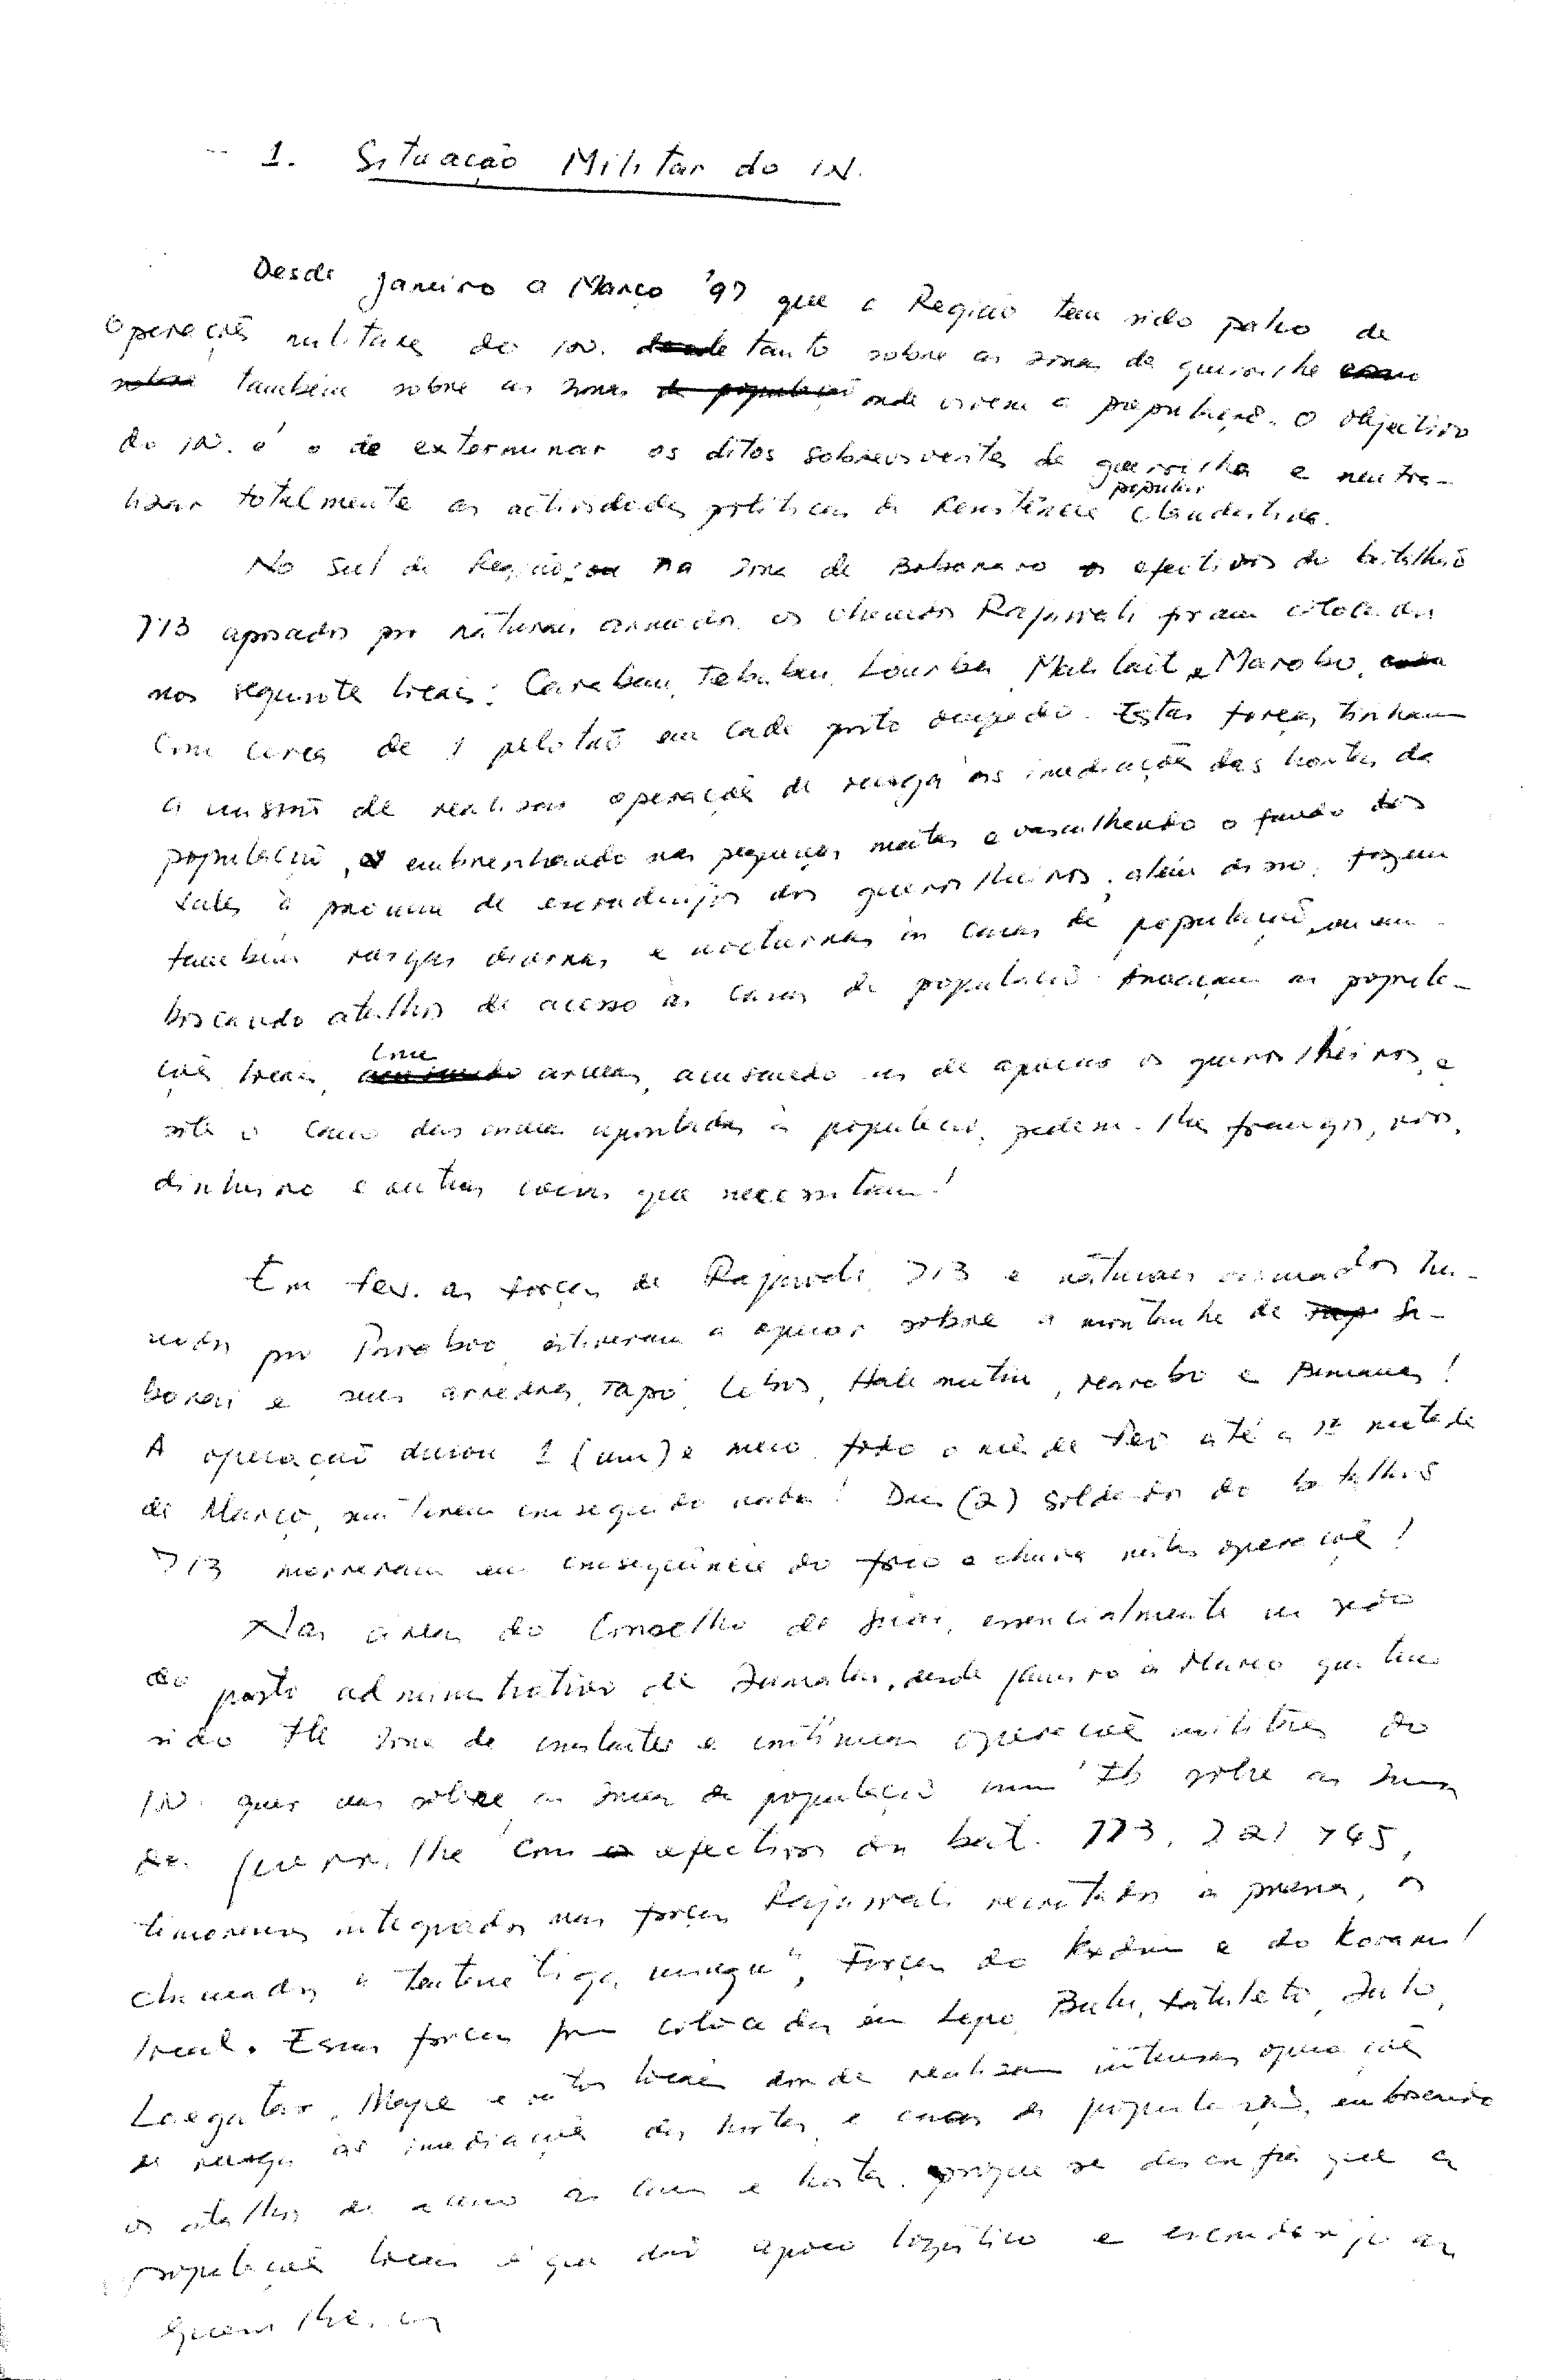 1. Situação Militar do IN.
Desde Janeiro a Março '97 que a Região tem sido palco de
operações militares do IN. tanto sobre as zonas de guerrilha
também sobre as zonas onde vivem a população. O objectivo
do IN. é o de exterminar os ditos sobreviventes da guerrilha e neutra-
lizar totalmente as actividades políticas da Resistência popular clandestina.
No Sul da Região, na zona de Bobonaro os efectivos do batalhão
713 apoiados por naturais armados os chamados Rajawali foram colocados
nos seguinte locais: Tebaban, Lourba, Malilait e Marobo,
com cerca de 1 pelotão em cada posto ocupado. Estas forças tinham
a missão de realizar operações de rusga às imediações das hortas da
população, embrenhando nas pequenas matas e vasculhando o fundo dos
vales à procura de esconderijos dos guerrilheiros, além disso, fazem
também rusgas diurnas e nocturnas às casas da população, ou em-
boscando atalhos de acesso às casas da população. Ameaçam as popula-
ções locais, com armas, acusando-as de apoiar os guerrilheiros, e
sob o cano das armas apontadas à população, pedem-lhe frangos,
dinheiro e outras coisas que necessitam!
Em Fev. as forças de Rajawali, 713 e naturais armados
por estiveram a operar sobre a montanha de
e seus arredores, e
A operação durou 1 (um) e meio, todo o mês de Fev até a 1ª metade
de Março, sem terem conseguido nada! Dois (2) soldados do batalhão
713 morreram em consequência do frio e chuva nestas operações!
Nas áreas do Conselho de Suai, essencialmente na sede
do posto administrativo de Zumalai, desde Janeiro a Março que tem
sido tb zona de constantes e contínuas operações militares do
IN. quer nas sobre as zonas da população como tb sobre as zonas
da guerrilha com efectivos dos bat. 713, 721, 745,
timorenses integrados nas forças Rajawali recrutados à pressa, os
chamados a "tentara tiga minggu", Forças do Kodim e do Koramil
local. Essas forças foram colocadas em Lepo, Beilu, Zulo,
Loegatar, Mape e outros locais donde realizam intensas operações
de rusga às imediações das hortas e casas da população, emboscando
os atalhos de acesso às casas e hortas, porque se desconfia que as
populações locais é que dão apoio logístico e esconderijo aos
guerrilheiros